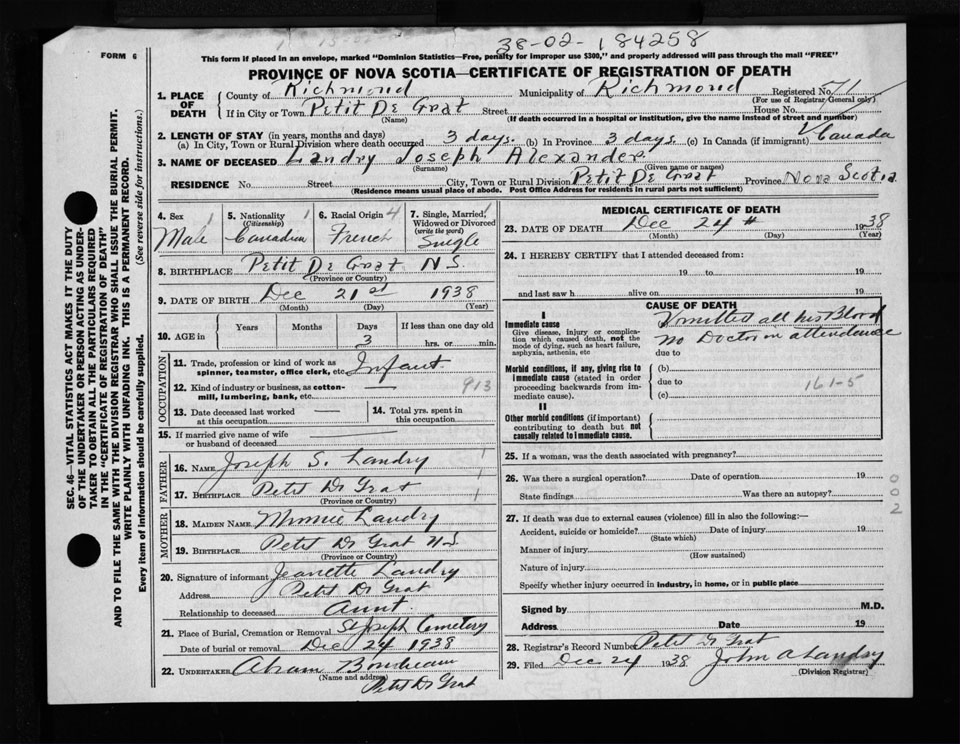 38-02-184258
FORM 6
This form if placed in an envelope, marked "Dominion Statistics—Free, penalty for improper use $300," and properly addressed will pass through the mail "FREE"
PROVINCE OF NOVA SCOTIA—CERTIFICATE OF REGISTRATION OF DEATH
SEC. 46—VITAL STATISTICS ACT MAKES IT THE DUTY
OF THE UNDERTAKER OR PERSON ACTING AS UNDER-
TAKER TO OBTAIN ALL THE PARTICULARS REQUIRED
IN THE "CERTIFICATE OF REGISTRATION OF DEATH"
AND TO FILE THE SAME WITH THE DIVISION REGISTRAR WHO SHALL ISSUE THE BURIAL PERMIT.
WRITE PLAINLY WITH UNFADING INK. THIS IS A PERMANENT RECORD.
Every item of information should be carefully supplied. (See reverse side for instructions.)
1. PLACE OF DEATH
County of Richmond Municipality of Richmond Registered No. 71
(For use of Registrar General only)
If in City or Town Petit De Grat Street House No.
(Name) (If death occurred in a hospital or institution, give the name instead of street and number)
2. LENGTH OF STAY (in years, months and days)
(a) In City, Town or Rural Division where death occurred 3 days. (b) In Province 3 days. (c) In Canada (if immigrant) Canada
3. NAME OF DECEASED Landry Joseph Alexander
(Surname) (Given name or names)
RESIDENCE No. Street City, Town or Rural Division Petit De Grat Province Nova Scotia
(Residence means usual place of abode. Post Office Address for residents in rural parts not sufficient)
4. Sex 1
Male
5. Nationality 1
(Citizenship)
Canadian
6. Racial Origin 4
French
7. Single, Married, Widowed or Divorced
(write the word)
Single
8. BIRTHPLACE Petit De Grat N.S.
(Province or Country)
9. DATE OF BIRTH Dec 21st 1938
(Month) (Day) (Year)
10. AGE in
Years Months Days If less than one day old
3 hrs. or min.
OCCUPATION
11. Trade, profession or kind of work as
spinner, teamster, office clerk, etc. Infant
12. Kind of industry or business, as cotton-
mill, lumbering, bank, etc. — 913
13. Date deceased last worked
at this occupation —
14. Total yrs. spent in
this occupation
15. If married give name of wife
or husband of deceased
FATHER
16. NAME Joseph S. Landry
17. BIRTHPLACE Petit D Grat
(Province or Country)
MOTHER
18. MAIDEN NAME Minnie Landry
19. BIRTHPLACE Petit D Grat N.S
(Province or Country)
20. Signature of informant Jeanette Landry
Address Petit D Grat
Relationship to deceased Aunt.
21. Place of Burial, Cremation or Removal St Joseph Cemetery
Date of burial or removal Dec 24 1938
22. UNDERTAKER Abram Boudreau
(Name and address)
Petit D Grat
MEDICAL CERTIFICATE OF DEATH
23. DATE OF DEATH Dec 24th 1938
(Month) (Day) (Year)
24. I HEREBY CERTIFY that I attended deceased from:
19 to 19
and last saw h alive on 19
CAUSE OF DEATH
I
Immediate cause
Give disease, injury or complica-
tion which caused death, not the
mode of dying, such as heart failure,
asphyxia, asthenia, etc
Vmitted all his Blood
No Doctor in attendence
due to
Morbid conditions, if any, giving rise to
immediate cause (stated in order
proceeding backwards from im-
mediate cause).
(b)
due to 161-5
(c)
II
Other morbid conditions (if important)
contributing to death but not
causally related to immediate cause.
25. If a woman, was the death associated with pregnancy?
26. Was there a surgical operation? Date of operation 19
State findings Was there an autopsy?
002
27. If death was due to external causes (violence) fill in also the following:—
Accident, suicide or homicide? Date of injury 19
(State which)
Manner of injury
(How sustained)
Nature of injury
Specify whether injury occurred in industry, in home, or in public place
Signed by M.D.
Address Date 19
28. Registrar's Record Number Petit D Grat
29. Filed Dec 24 1938 John A Landry
(Division Registrar)